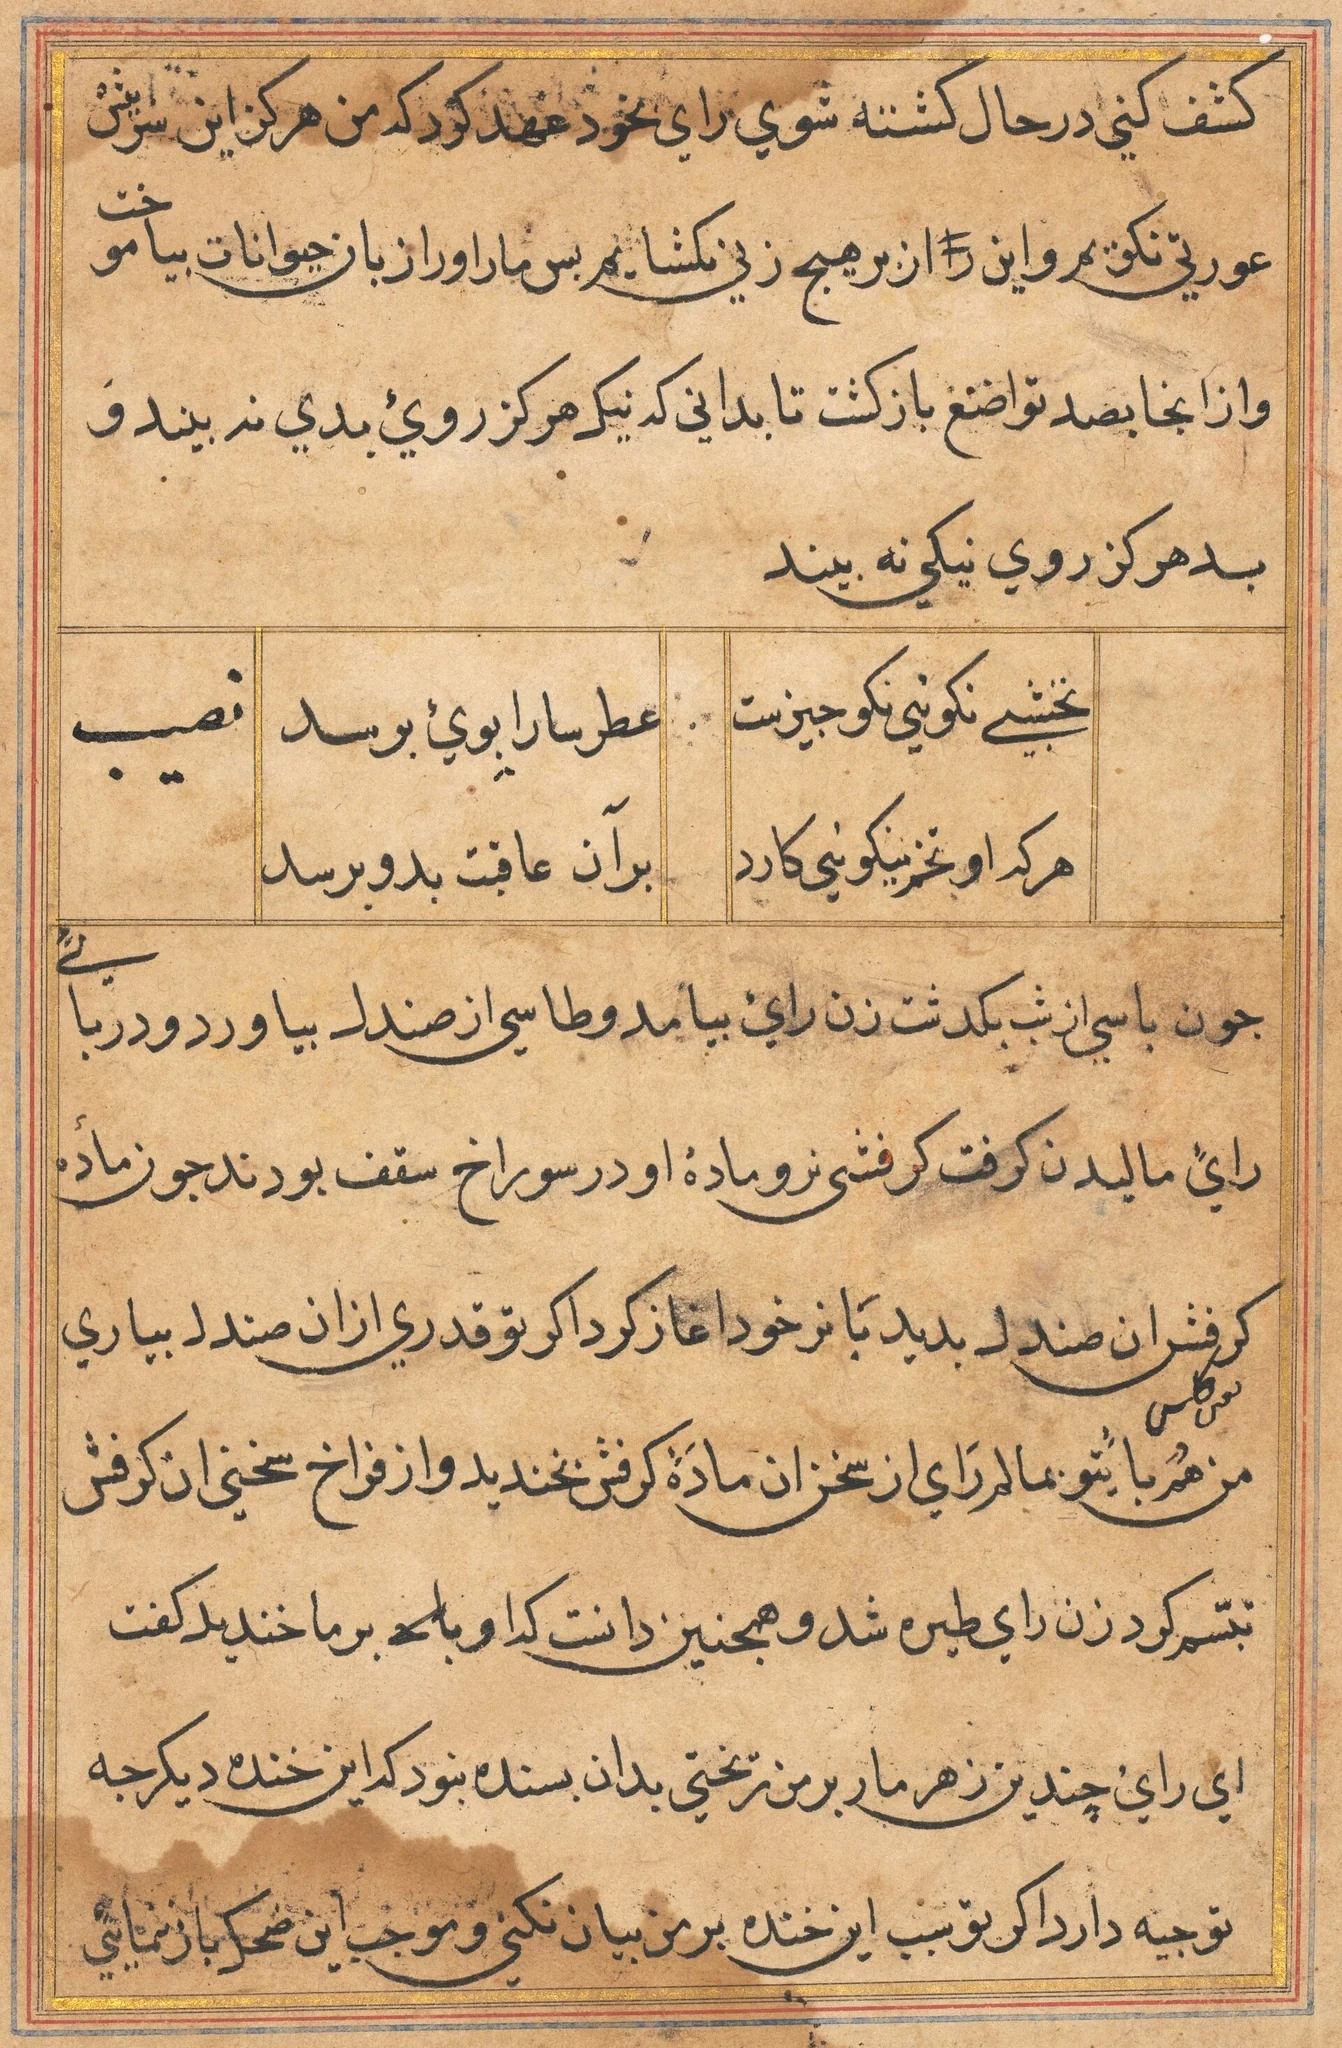 کشف کنی در حال کشته شوی رای بخود عهد کرد که من هرکز این سر پیش
عورتی نکویم و این راز بر هیچ زنی نکشایم بس مار اورا زبان حیوانات بیاموخت
و از انجا بصد تواضع بازکشت تا بدانی که نیک هرکز روئ بدی نه بیند و
بد هرکز روی نیکی نه بیند
نخشبی نکوئی نکو جیزست
عطر سارا بوئ بو رسد
نصیب
هرکه او تخم نیکوئی کارد
بر آن عاقبت بدو برسد
جون باسی از شب بکدشت زن رائ بیامد و طاسی از صندل بیاورد و در بائے
رائ مالیدن کرفت کرفشی نر و مادۀ او در سوراخ سقف بودند جون مادۀ
کرفش ان صندل بدید با نر خود اغاز کرد اکر تو قدری ازان صندل بیاری
من هم با تو بمالم رای از سخن ان مادۀ کرفش بخندید و از فراخ سخنی ان کرفش
تبسّم کرد زن رای طیره شد و همجنین دانست که او بر ما خندید کفت
ای رائ چندین زهر مار بر من ریختی بدان بسنده نبود که این خنده دیکر جه
توجیه دارد اکر تو سبب این خنده بر من بیان نکنی و موجب این ضحک باز ننمائی